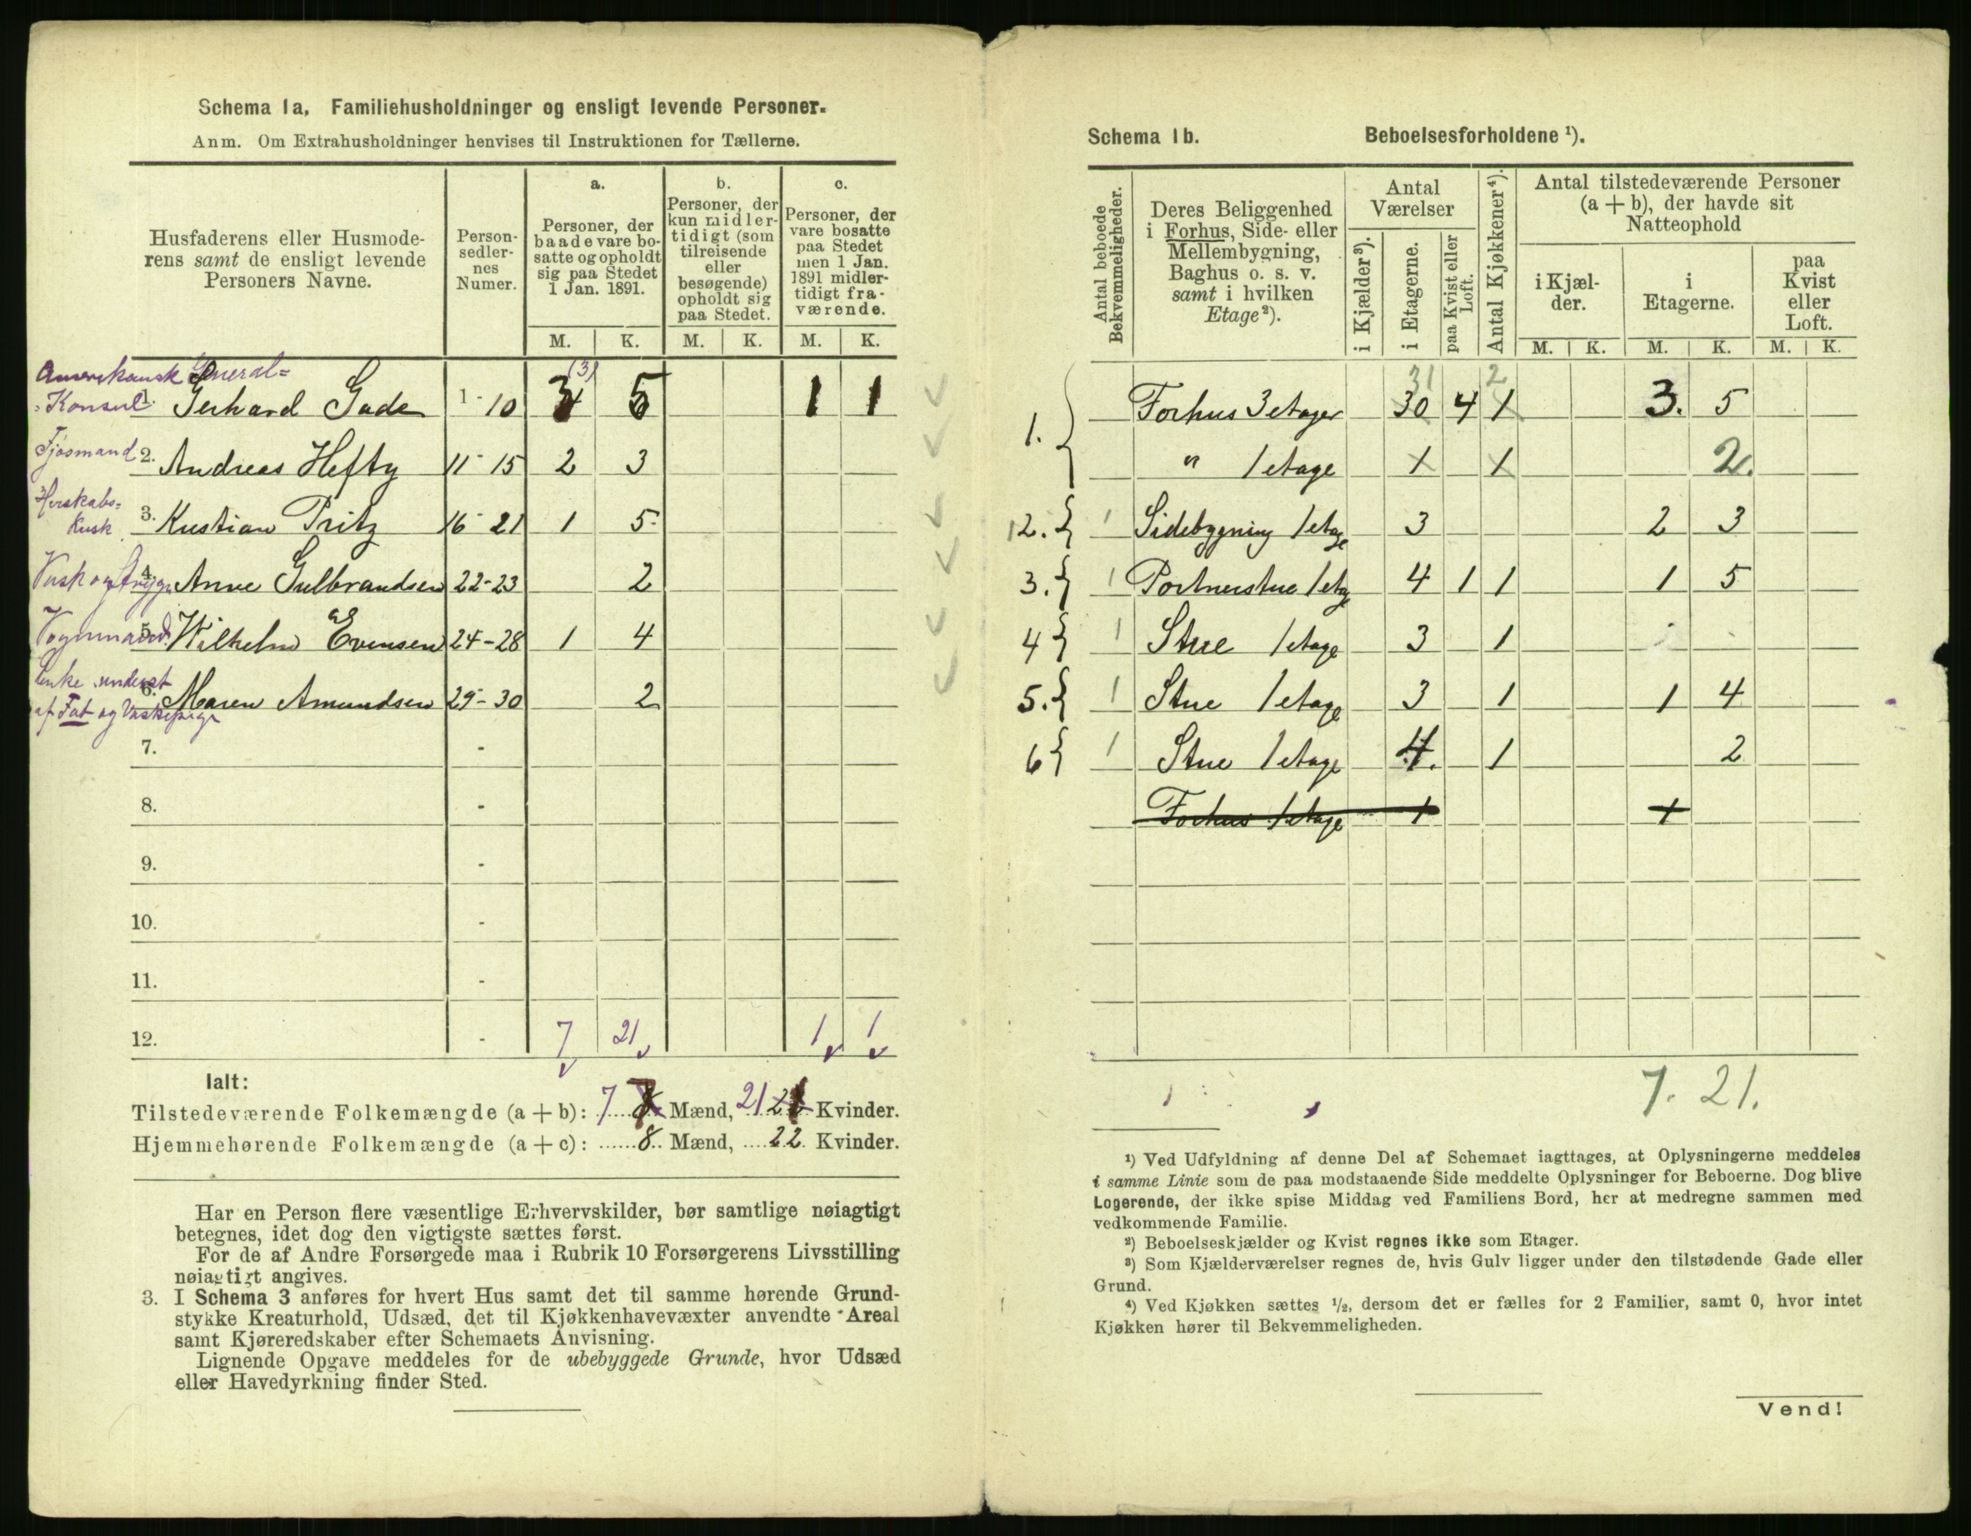 Schema 1a, Familiehusholdninger og ensligt levende Personer.
Anm. Om Extrahusholdninger henvises til Instruktionen for Tællerne.
Husfaderens eller Husmode-
rens samt de ensligt levende
Personers Navne.
Person-
sedler-
nes
Numer.
a.
Personer, der
baade vare bo-
satte og opholdt
sig paa Stedet
1 Jan. 1891.
b.
Personer, der
kun midler-
tidigt (som
tilreisende
eller
besøgende)
opholdt sig
paa Stedet.
c.
Personer, der
vare bosatte
paa Stedet
men 1 Jan.
1891 midler-
tidigt fra-
værende.
M. K. M. K. M. K.
Amerikansk General=
=Konsul 1. Gerhard Gade 1-10 3 (3) 5 1 1
Fjøsmand 2. Andreas Hefty 11-15 2 3
Herskabs=
Kusk. 3. Kristian Pritz 16-21 1 5
Vask og Strygn 4. Anne Gulbrandsen 22-23 2
Vognmand 5. Wilhelm Evensen 24-28 1 4
Enke underst
6. Maren Amundsen 29-30 2
af Fat og Vaskepige
7. -
8. -
9. -
10. -
11. -
12. - 7 21 1 1
Ialt:
Tilstedeværende Folkemængde (a + b): 7 Mænd, 21 Kvinder.
Hjemmehørende Folkemængde (a + c): 8 Mænd, 22 Kvinder.
Har en Person flere væsentlige Erhvervskilder, bør samtlige nøiagtigt
betegnes, idet dog den vigtigste sættes først.
For de af Andre Forsørgede maa i Rubrik 10 Forsørgerens Livsstilling
nøiagtigt angives.
3. I Schema 3 anføres for hvert Hus samt det til samme hørende Grund-
stykke Kreaturhold, Udsæd, det til Kjøkkenhavevæxter anvendte Areal
samt Kjøreredskaber efter Schemaets Anvisning.
Lignende Opgave meddeles for de ubebyggede Grunde, hvor Udsæd
eller Havedyrkning finder Sted.
Schema 1b. Beboelsesforholdene ¹).
Antal beboede
Bekvemmeligheder.
Deres Beliggenhed
i Forhus, Side- eller
Mellembygning,
Baghus o. s. v.
samt i hvilken
Etage²).
Antal
Værelser
i Kjælder³).
i Etagerne.
paa Kvist eller
Loft.
Antal Kjøkkener⁴).
Antal tilstedeværende Personer
(a + b), der havde sit
Natteophold
i Kjæl-
der.
i
Etagerne.
paa
Kvist
eller
Loft.
M. K. M. K. M. K.
31 2
1. Forhus 3 etager 30 4 1 3. 5
" 1 etage 1 1 2.
2. 1 Sidebygning 1 etage 3 2 3
3. 1 Portnerstue 1 etage 4 1 1 1 5
4 1 Stue 1 etage 3 1
5. 1 Stue 1 etage 3 1 1 4
6 1 Stue 1 etage 4. 1 2
Forhus 1 etage 1 1
7. 21.
¹) Ved Udfyldning af denne Del af Schemaet iagttages, at Oplysningerne meddeles
i samme Linie som de paa modstaaende Side meddelte Oplysninger for Beboerne. Dog blive
Logerende, der ikke spise Middag ved Familiens Bord, her at medregne sammen med
vedkommende Familie.
²) Beboelseskjælder og Kvist regnes ikke som Etager.
³) Som Kjælderværelser regnes de, hvis Gulv ligger under den tilstødende Gade eller
Grund.
⁴) Ved Kjøkken sættes ½, dersom det er fælles for 2 Familier, samt 0, hvor intet
Kjøkken hører til Bekvemmeligheden.
Vend!